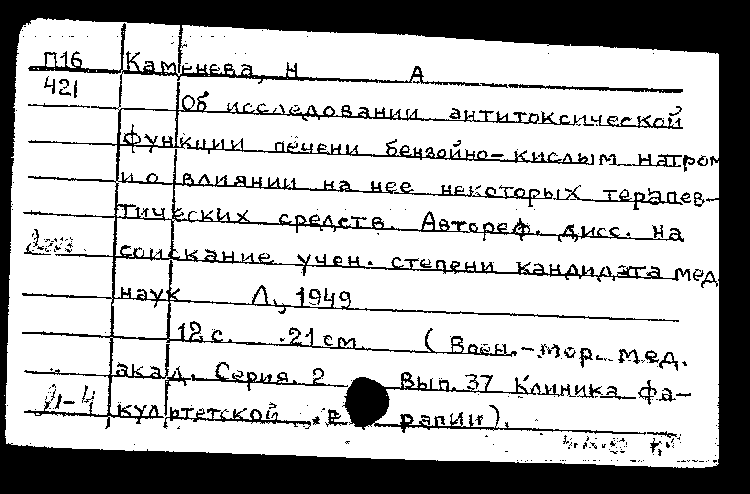 П16 Каменева, Н А
421 Об исследовании антитоксической
функции печени бензойно-кислым натром
и о влиянии на нее некоторых терапев-
тических средств. Автореф. дисс. на
соискание учен. степени кандидата мед.
наук Л., 1949
12 с. 21 см. (Воен.-мор. мед.
акад. Серия. 2 Вып. 37 Клиника фа-
культетской рапии).